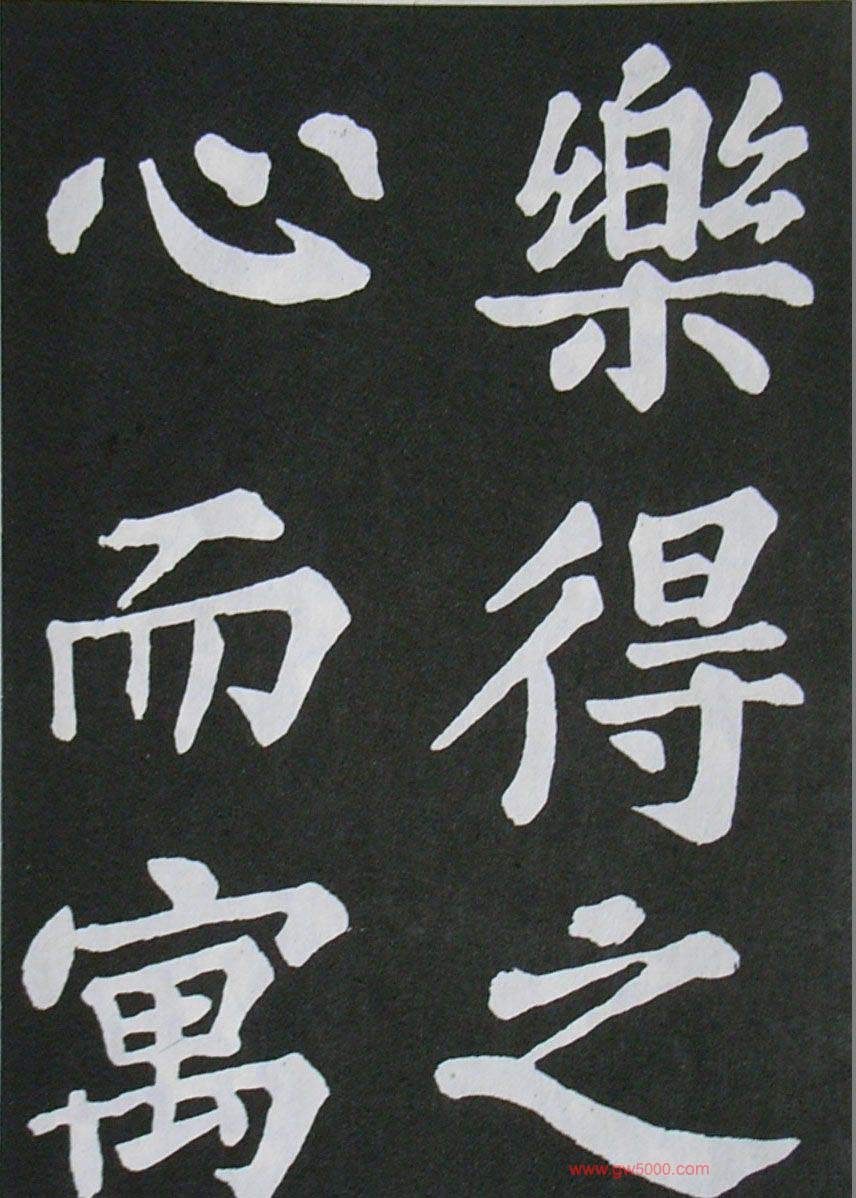 樂得之
心而寓
www.gw5000.com